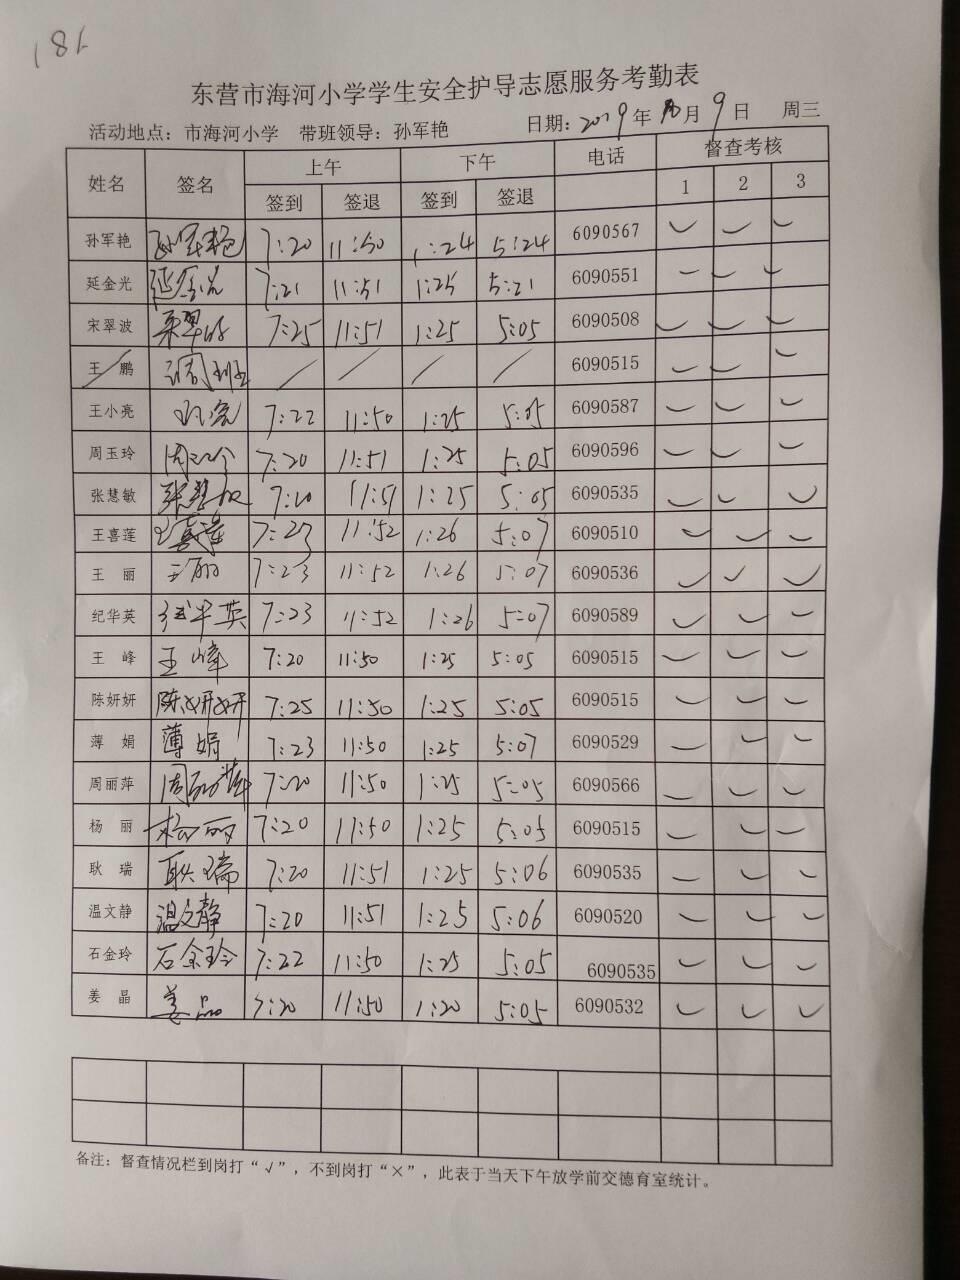 181
东营市海河小学学生安全护导志愿服务考勤表
活动地点：市海河小学 带班领导：孙军艳 日期：2019年10月9日 周三
姓名 签名 上午 下午 电话 督查考核
签到 签退 签到 签退 1 2 3
孙军艳 孙军艳 7:20 11:50 1:24 5:24 6090567 ✓ ✓ ✓
延金光 延金光 7:21 11:51 1:25 5:21 6090551 ✓ ✓ ✓
宋翠波 宋翠波 7:25 11:51 1:25 5:05 6090508 ✓ ✓ ✓
王鹏 调班 / / / / 6090515 ✓ ✓ ✓
王小亮 7:22 11:50 1:25 5:05 6090587 ✓ ✓ ✓
周玉玲 周玉玲 7:20 11:51 1:25 5:05 6090596 ✓ ✓ ✓
张慧敏 张慧敏 7:20 11:51 1:25 5:05 6090535 ✓ ✓ ✓
王喜莲 王喜莲 7:23 11:52 1:26 5:07 6090510 ✓ ✓ ✓
王丽 王丽 7:23 11:52 1:26 5:07 6090536 ✓ ✓ ✓
纪华英 纪华英 7:23 11:52 1:26 5:07 6090589 ✓ ✓ ✓
王峰 王峰 7:20 11:50 1:25 5:05 6090515 ✓ ✓ ✓
陈妍妍 陈妍妍 7:25 11:50 1:25 5:05 6090515 ✓ ✓ ✓
薄娟 薄娟 7:23 11:50 1:25 5:07 6090529 ✓ ✓ ✓
周丽萍 周丽萍 7:20 11:50 1:25 5:05 6090566 ✓ ✓ ✓
杨丽 杨丽 7:20 11:50 1:25 5:05 6090515 ✓ ✓ ✓
耿瑞 耿瑞 7:20 11:51 1:25 5:06 6090535 ✓ ✓ ✓
温文静 温文静 7:20 11:51 1:25 5:06 6090520 ✓ ✓ ✓
石金玲 石金玲 7:22 11:50 1:25 5:05 6090535 ✓ ✓ ✓
姜晶 姜晶 7:20 11:50 1:20 5:05 6090532 ✓ ✓ ✓
备注：督查情况栏到岗打“√”，不到岗打“×”，此表于当天下午放学前交德育室统计。